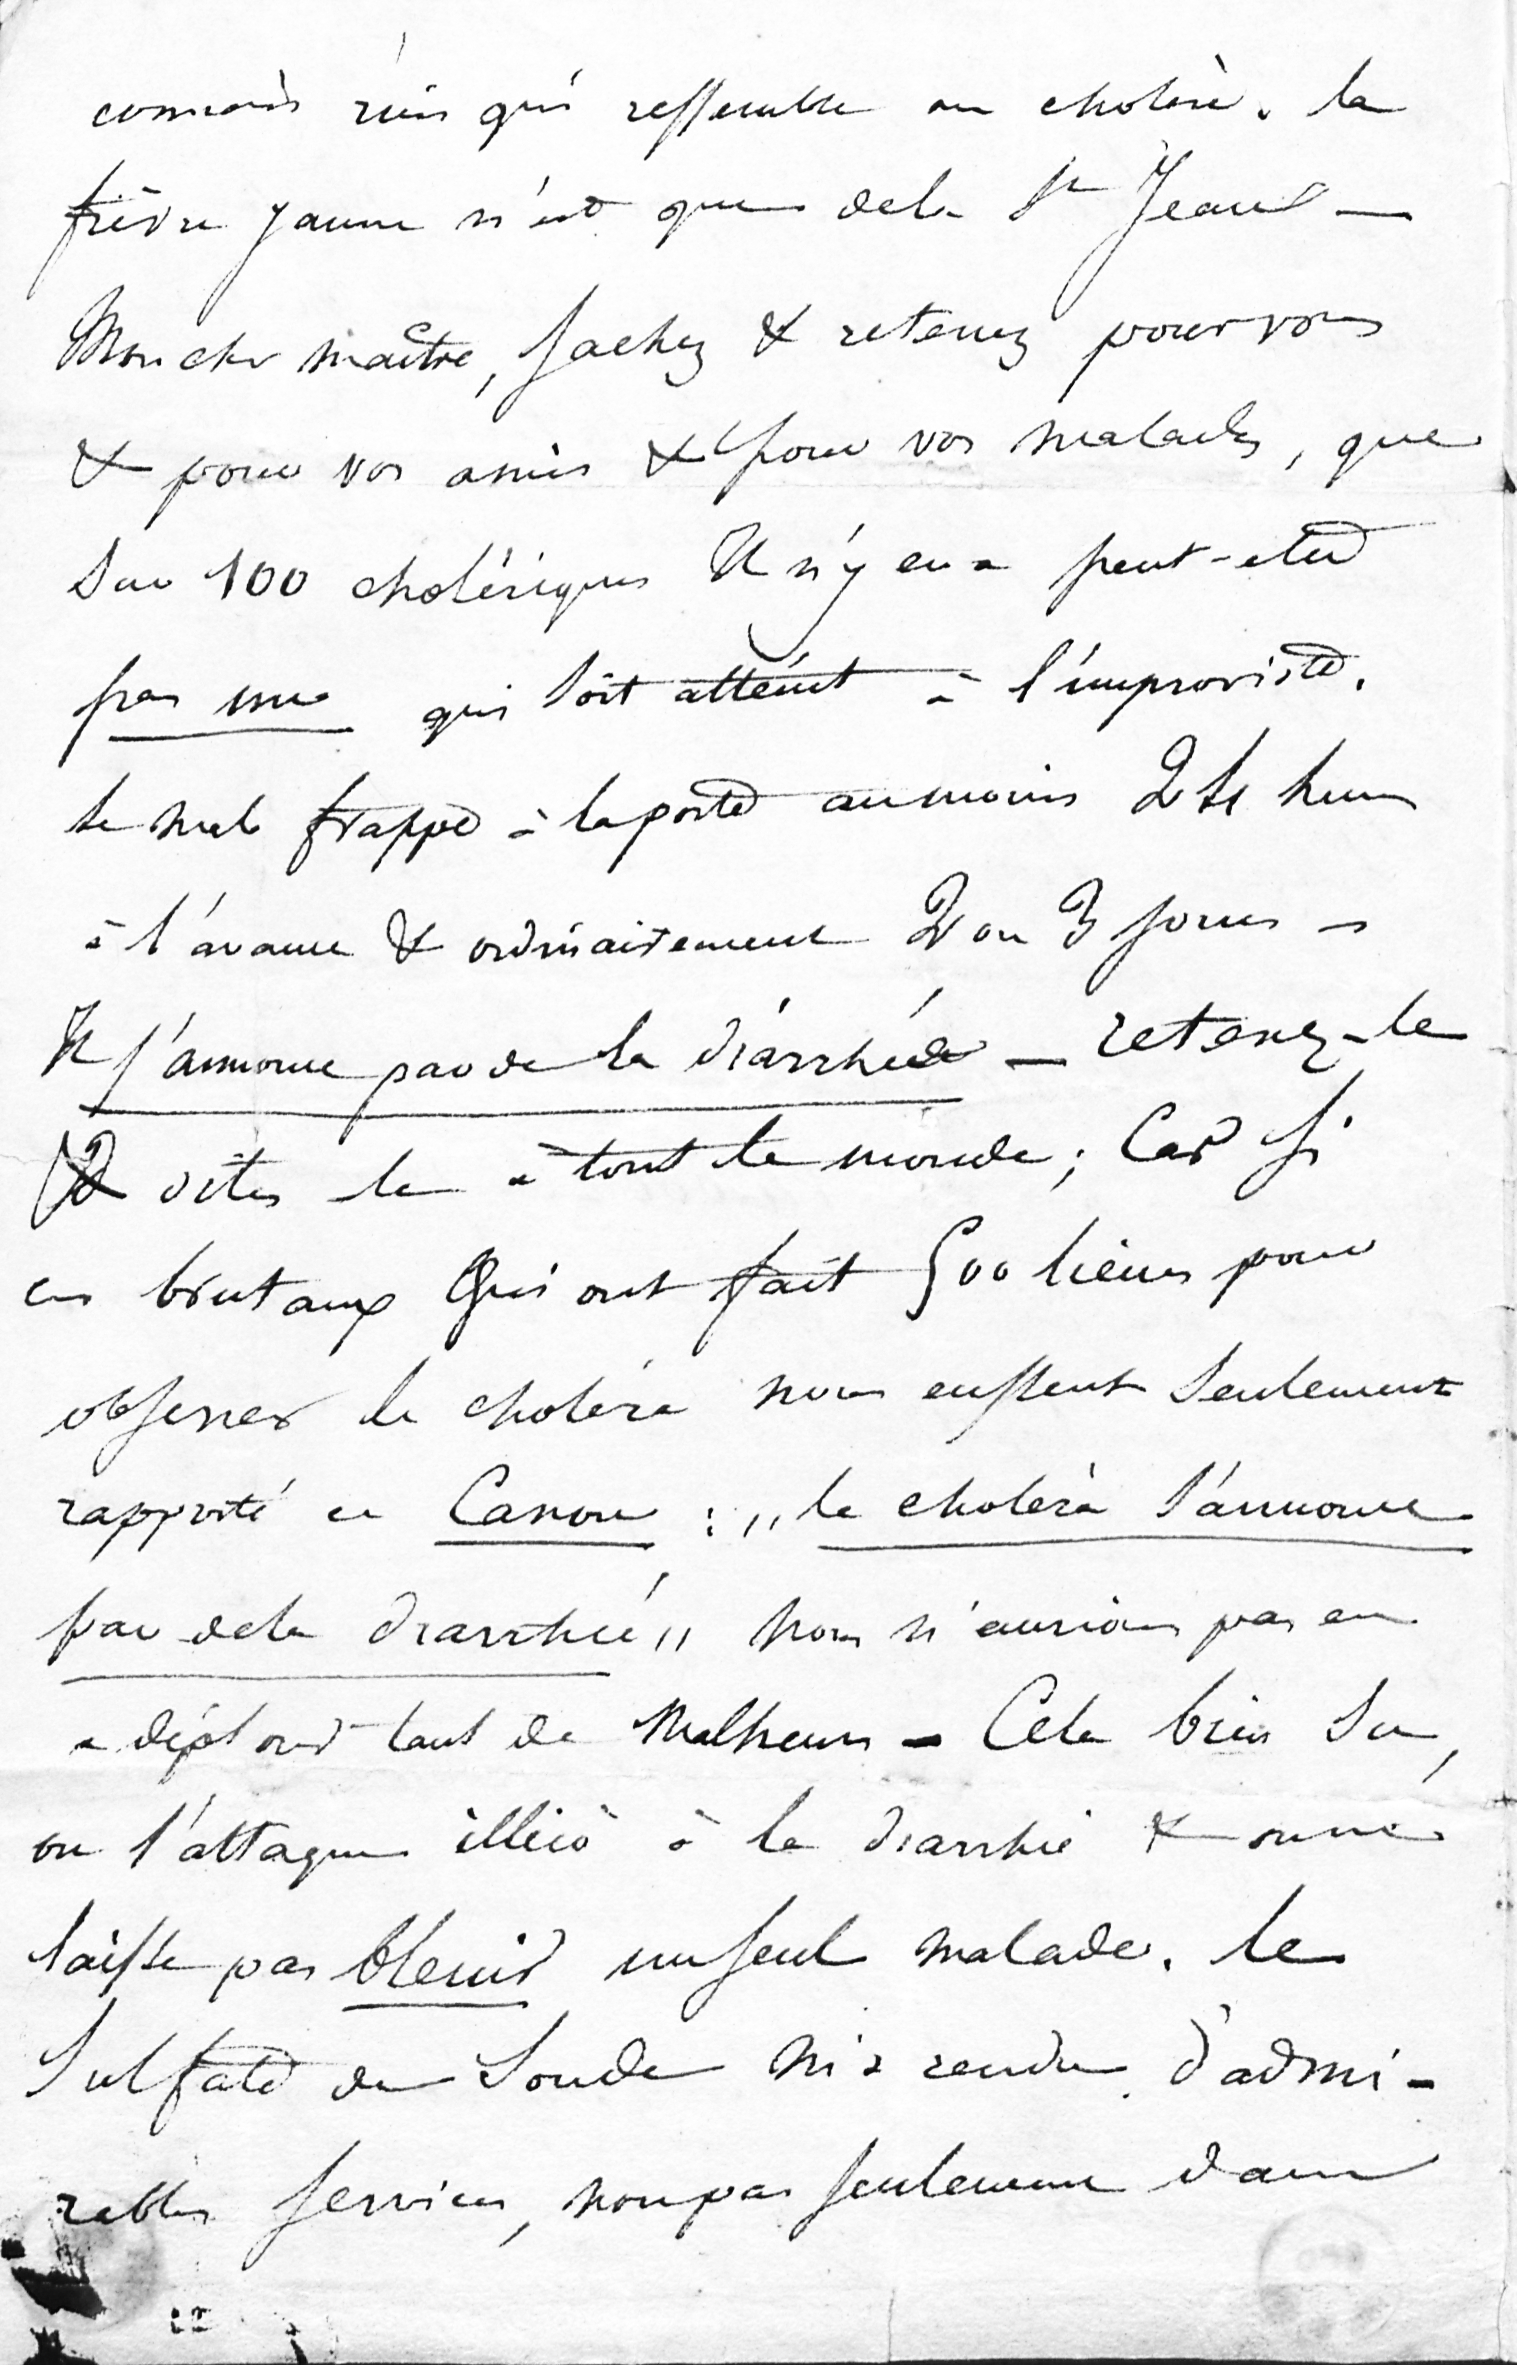 connais rien qui ressemble au choléra. la
fièvre jaune n'est que de la St Jean —
Mon cher maître, sachez & retenez pour vous
& pour vos amis & pour vos malades, que
sur 100 cholériques Il n'y en a peut-etre
pas un qui soit atteint à l'improviste.
le mal frappe à la porte au moins 24 heures
à l'avance & ordinairement 2 ou 3 jours —
Il s'annonce par de la diarrhée — retenez-le
& dites le à tout le monde ; Car si
ces brutaux Qui ont fait 500 lieues pour
observer le choléra nous eussent seulement
rapporté ce Canon : „ le choléra s'annonce
par de la diarrhée „ nous n'aurions pas eu
a déplorer tant de Malheurs — Cela bien su,
on l'attaque illico à la diarrhée & on ne
laisse pas bleuir un seul malade. le
Sulfate de Soude m'a rendu d'admi-
rables services, non pas seulement dans